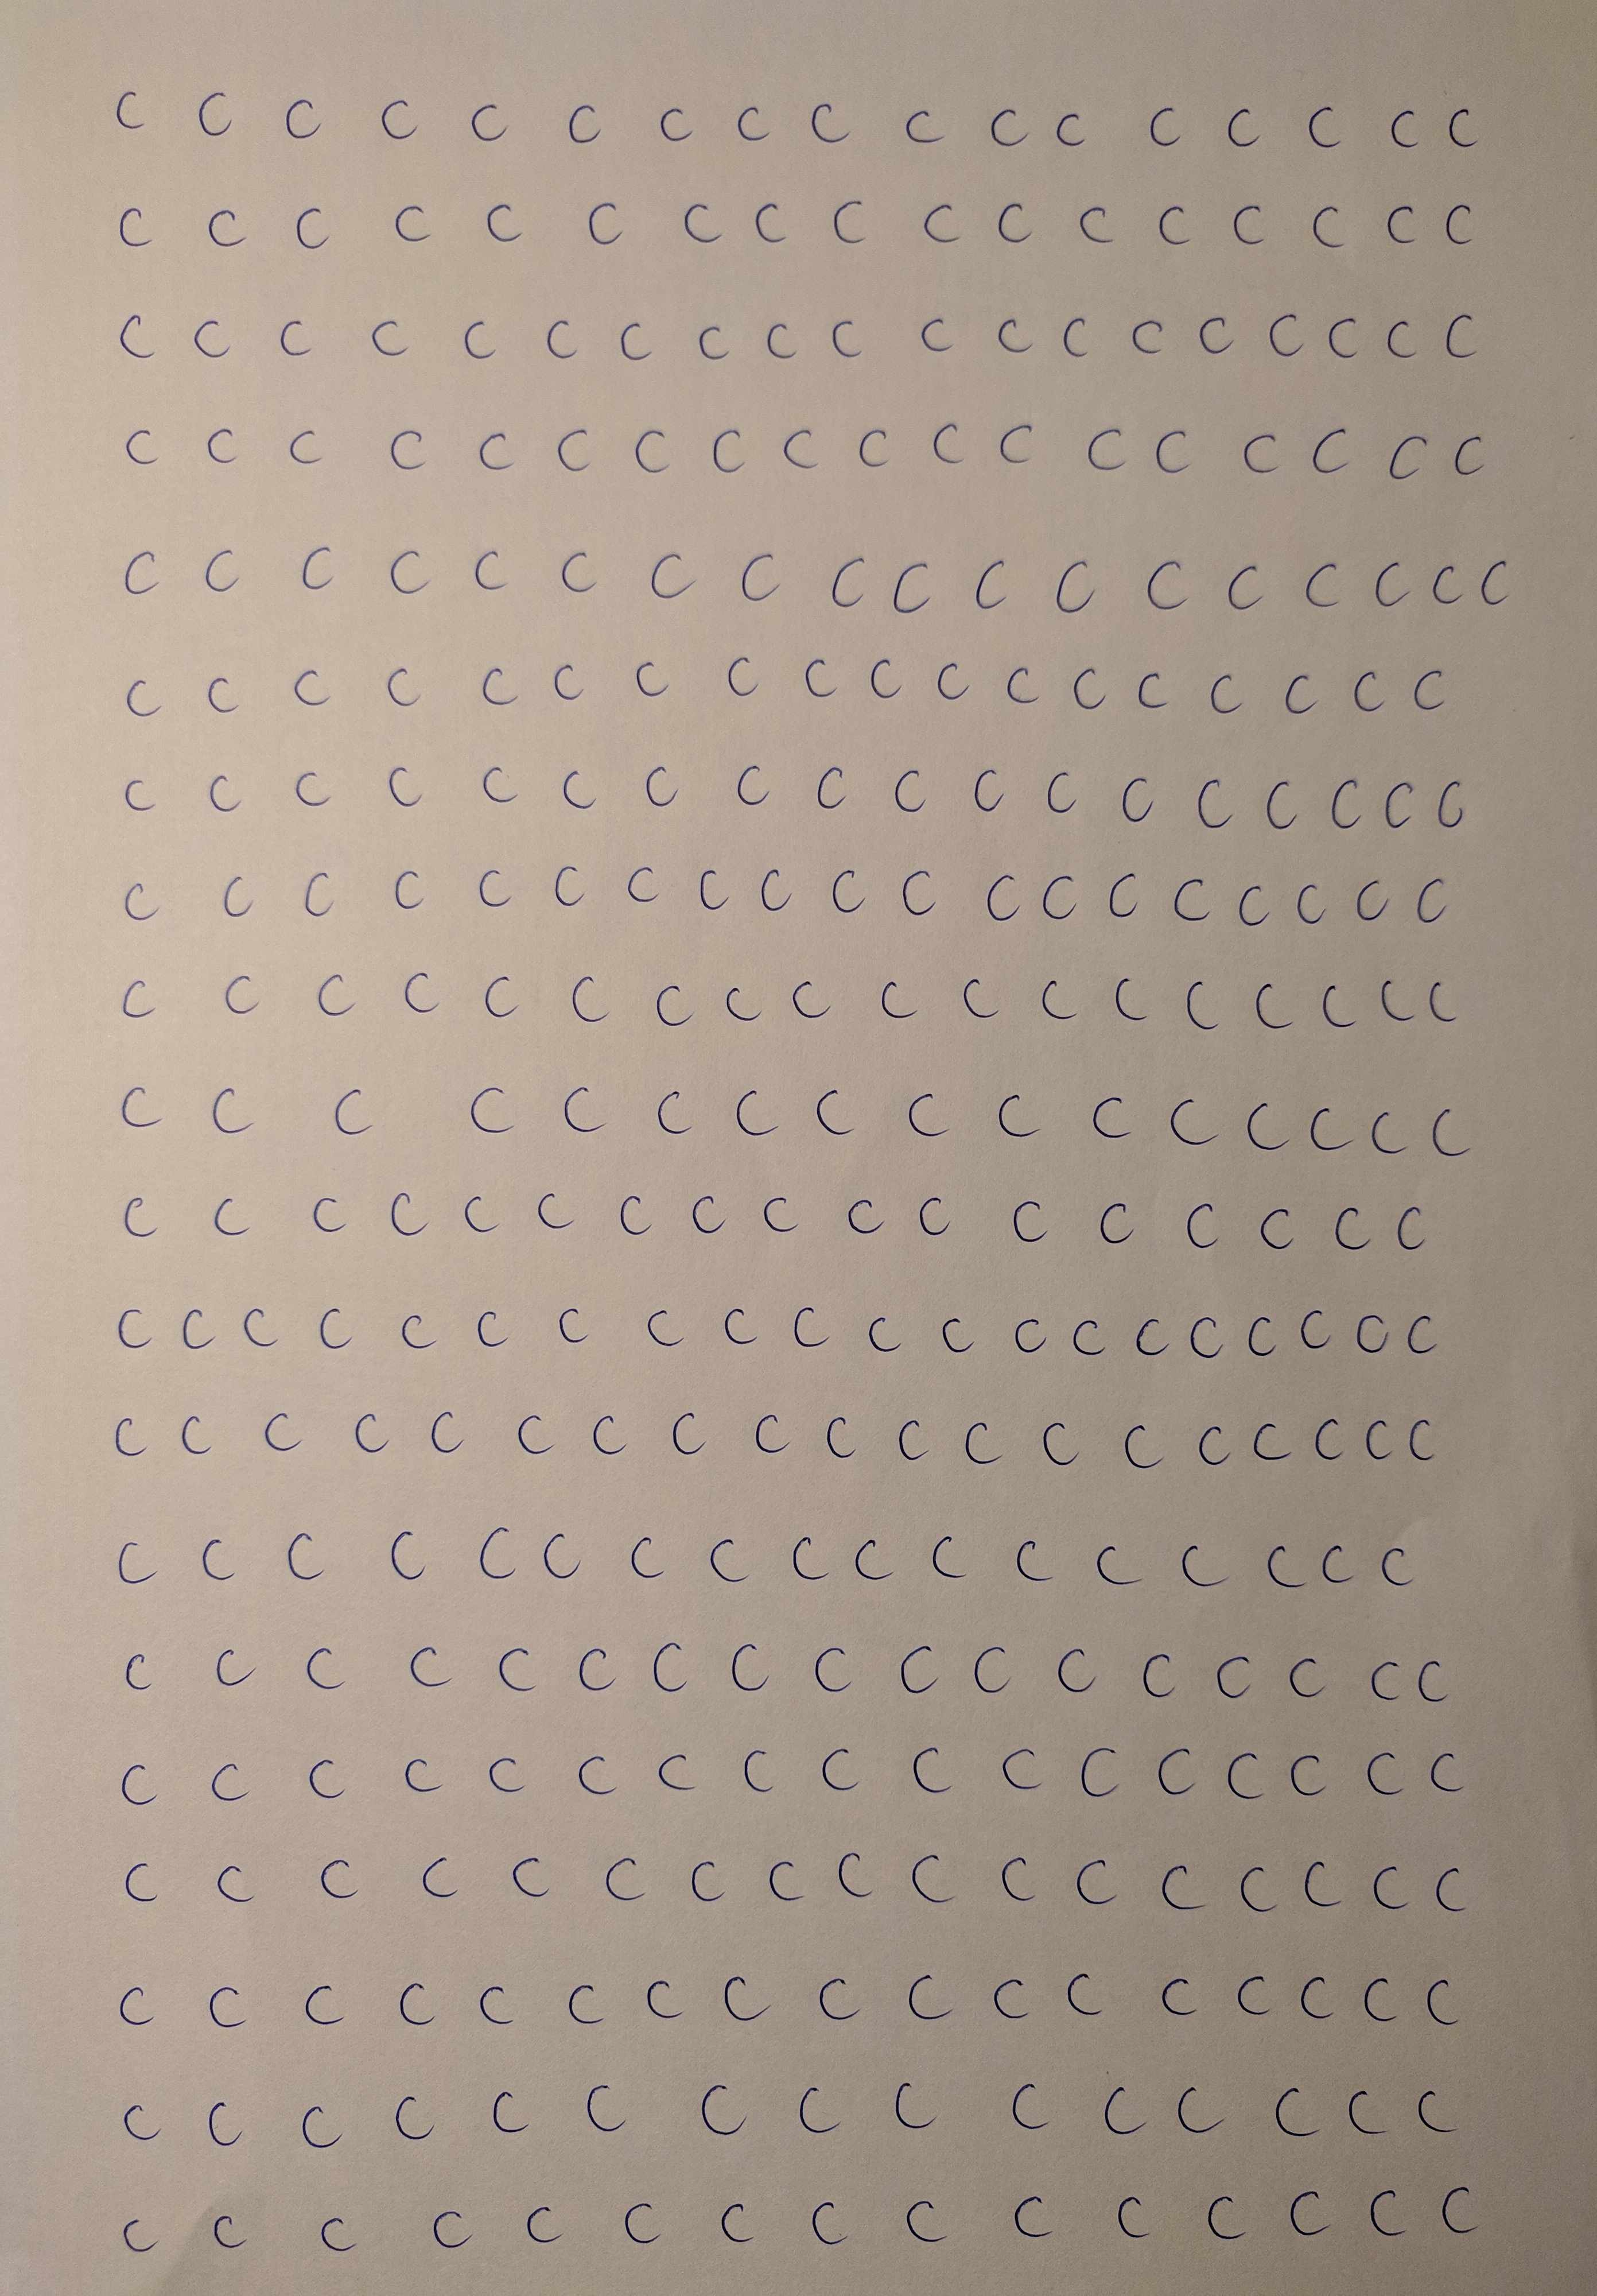 C C C C C C C C C C C C C C C C C
C C C C C C C C C C C C C C C C C
C C C C C C C C C C C C C C C C C C C
C C C C C C C C C C C C C C C C C C
C C C C C C C C C C C C C C C C C C
C C C C C C C C C C C C C C C C C C
C C C C C C C C C C C C C C C C C C
C C C C C C C C C C C C C C C C C C C
C C C C C C C C C C C C C C C C C C
C C C C C C C C C C C C C C C C
C C C C C C C C C C C C C C C C C
C C C C C C C C C C C C C C C C C C C C
C C C C C C C C C C C C C C C C C C C
C C C C C C C C C C C C C C C C C
C C C C C C C C C C C C C C C C C
C C C C C C C C C C C C C C C C C
C C C C C C C C C C C C C C C C C
C C C C C C C C C C C C C C C C C
C C C C C C C C C C C C C C C
C C C C C C C C C C C C C C C